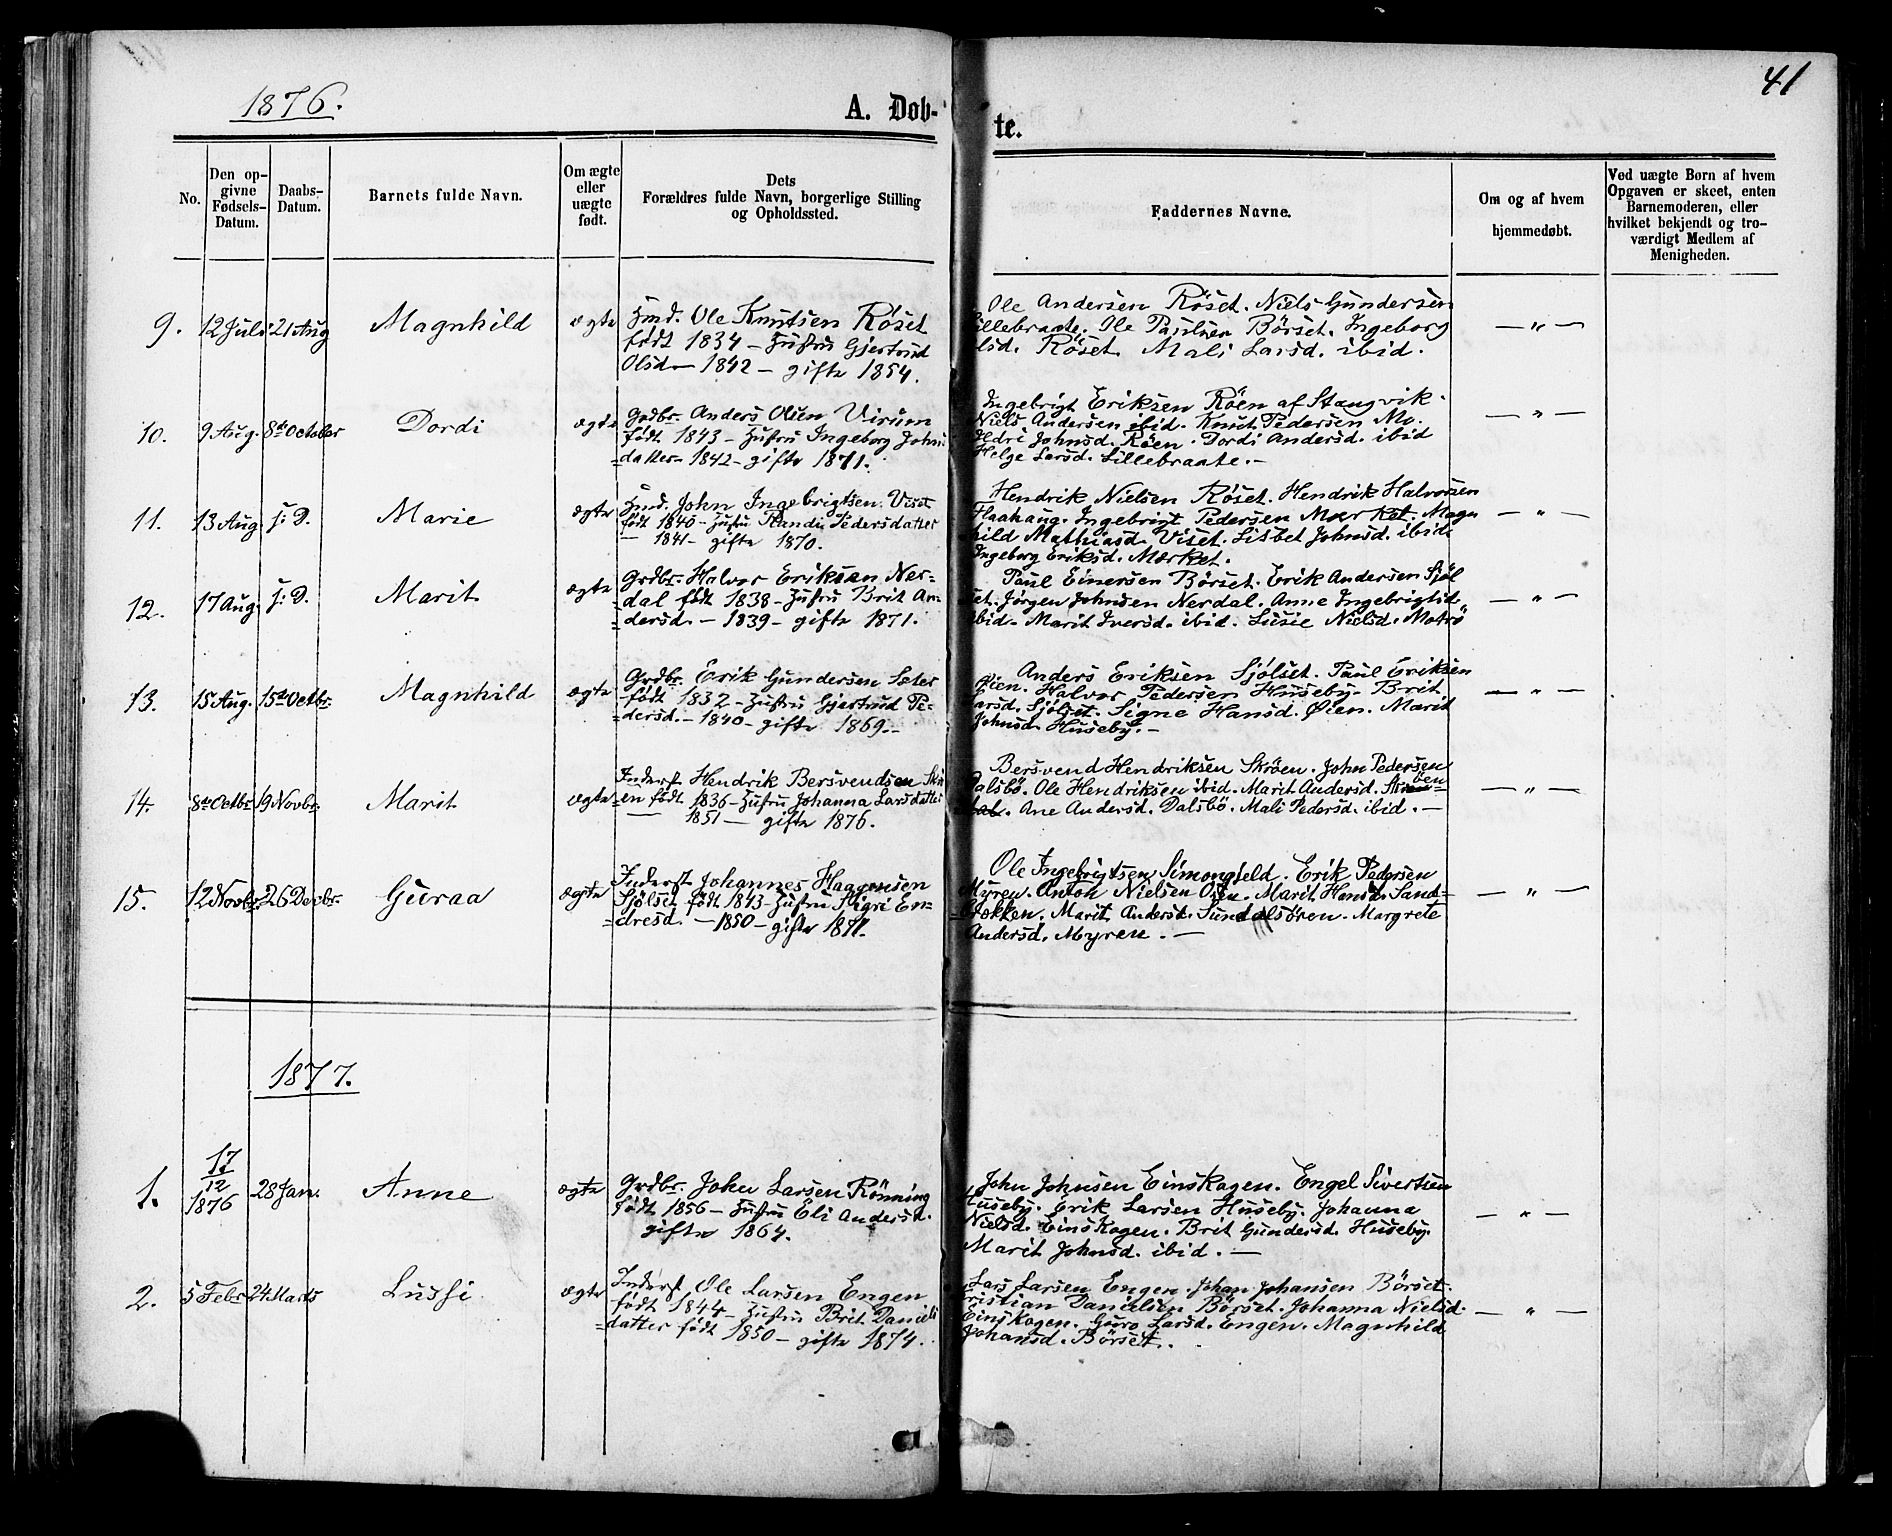 41
1876.
A. Døb-
te.
No.
Den op-
givne
Fødsels-
Datum.
Daabs-
Datum.
Barnets fulde Navn.
Om ægte
eller
uægte
født.
Dets
Forældres fulde Navn, borgerlige Stilling
og Opholdssted.
Faddernes Navne.
Om og af hvem
hjemmedøbt.
Ved uægte Børn af hvem
Opgaven er skeet, enten
Barnemoderen, eller
hvilket bekjendt og tro-
værdigt Medlem af
Menigheden.
9. 12 Juli 21 Aug Magnhild ægte
Hmd. Ole Knutsen Röset
født 1834 – Hustru Gjertrud
Olsd – 1842 – gifte 1854.
Ole Andersen Röset. Niels Gundersen
Lillebraate. Ole Paulsen Börset. Ingeborg
Olsd. Röset. Mali Larsd. ibid.
— " —
10. 9 Aug. 8de October Dordi ægte
Grdbr. Anders Olsen Virum
født 1843 – Hustru Ingeborg Johns
=datter – 1842 – gifte 1871.
Ingebrigt Eriksen Röen af Stangvik.
Niels Andersen ibid. Knut Pedersen Mo.
Johnsd. Röen. Dordi Andersd. ibid
Helge Larsd. Lillebraate. –
— " —
11. 13 Aug. s: D. Marie ægte
Hmd. John Ingebrigtsen Viset
født 1840 – Hustru Randi Pedersdatter
— 1841 – gifte 1870.
Hendrik Nielsen Röset. Hendrik Halvorsen
Haahaug. Ingebrigt Pedersen Mærket. Magn
hild Mathiasd. Viset. Lisbet Johnsd. ibid.
Ingeborg Eriksd. Mærket.
— " —
12. 17 Aug. s: D. Marit ægte
Grdbr. Halvor Eriksen Ner=
=dal født 1838 – Hustru Brit An=
=dersd. – 1839 – gifte 1871.
Paul Einersen Börset. Erik Andersen Sjöl
set. Jørgen Johnsen Nerdal. Anne Ingebrigtsd.
ibid. Marit Iversd. ibid. Lusie Nielsd.
— " —
13. 15 Aug. 15de Octbr. Magnhild ægte
Grdbr. Erik Gundersen Sæter
– født 1832 – Hustru Gjertrud Pe=
=dersd. – 1840 – gifte 1869. –
Anders Eriksen Sjölset. Paul Eriksen
Øien. Halvor Pedersen Huseby. Brit
Larsd. Sjölset. Signe Hansd. Øien. Marit
Johnsd. Huseby. –
— " —
14. 8de Octbr. 19 Novbr. Marit ægte
Inderst Hendrik Bersvendsen Skrö
=en født 1836 – Hustru Johanna Larsdatter
— 1851 — gifte 1876.
Bersvend Hendriksen Skröen. John Pedersen
Dalsbö. Ole Hendriksen ibid. Marit Andersd. Skröen=
dal. Ane Andersd. Dalsbö. Mali Pedersd. ibid. –
— " —
15. 12 Novbr. 26 Decbr. Guraa ægte
Inderst Johannes Haagensen
Sjölset født 1843 – Hustru Sigri En=
=dresd. – 1850 – gifte 1871.
Ole Ingebrigtsen Simongjeld. Erik Pedersen
Myren. Anton Nielsen. Marit Hansd. Sand=
=brokken. Marit Andersd. Sundalsören. Margrete
Andersd. Myren. –
— " —
1877.
1. 17/12 1876 28 Jan. Anne ægte
Grdbr. John Larsen Rönning
født 1856 – Hustru Eli Andersd.
gifte 1864.
John Johnsen Einskagen. Engel Sivertsen
Huseby. Erik Larsen Huseby. Johanna
Nielsd. Einskogen. Brit Gundersd. Huseby.
Marit Johnsd. ibid. –
— " —
2. 5 Febr. 24 Marts Lussi ægte
Inderst Ole Larsen Engen
født 1844 – Hustru Brit Daniels
=datter født 1850 – gifte 1874.
Lars Larsen Engen. Johan Johansen Börset.
Kristian Danielsen Börset. Johanna Nielsd.
Einskogen. Guro Larsd. Engen. Magnhild
Johansd. Börset.
— " —